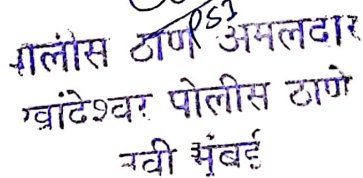 PSI
पोलीस ठाणे अमलदार
खांदेश्वर पोलीस ठाणे
नवी मुंबई